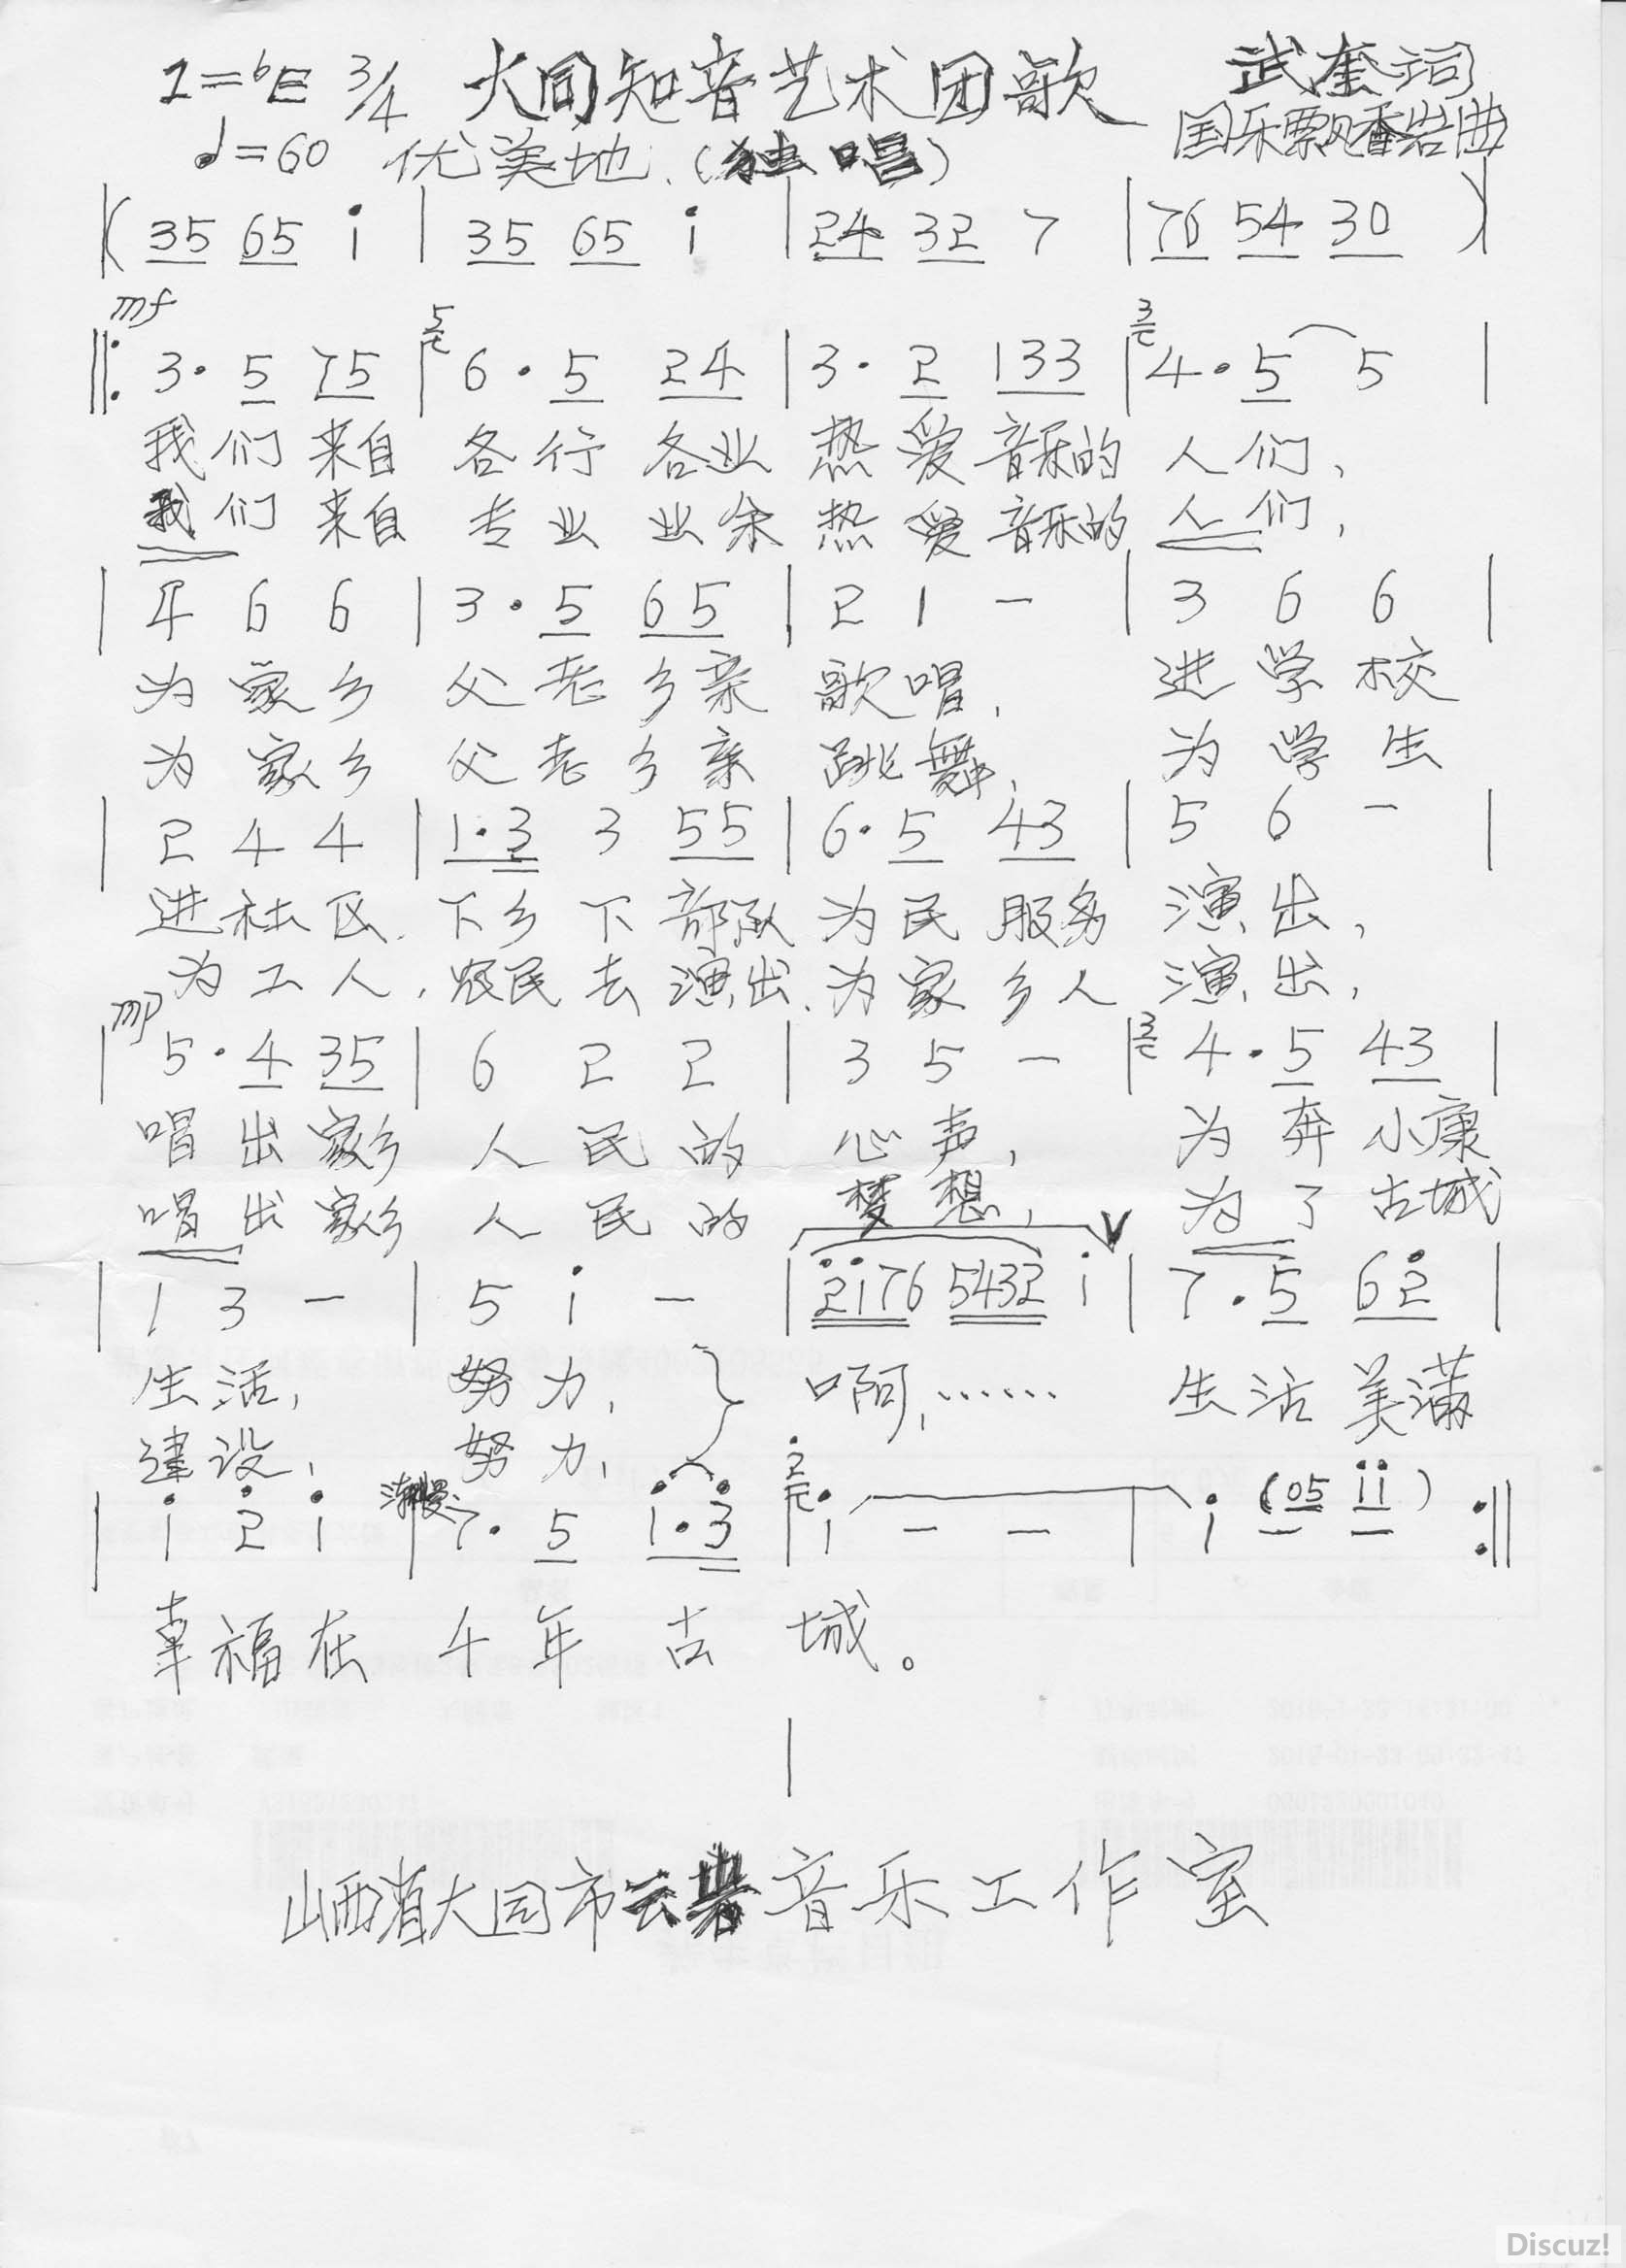 1=♭E 3/4 大同知音艺术团歌 武奎词
♩=60 优美地.(独唱) 国乐飘香岩曲
(35 65 i | 35 65 i | 24 32 7 | 76 54 30 )
mf
‖: 3· 5 75 | 5 6· 5 24 | 3· 2 133 | 3 4· 5 5 |
我们来自 各行各业 热爱音乐的 人们、
我们来自 专业业余 热爱音乐的 人们,
| 4 6 6 | 3· 5 65 | 2 1 - | 3 6 6 |
为家乡 父老乡亲 歌唱, 进学校
为家乡 父老乡亲 跳舞, 为学生
| 2 4 4 | 1·3 3 55 | 6·5 43 | 5 6 - |
进社区. 下乡下部队 为民服务 演出,
为工人, 农民去演出. 为家乡人 演出,
mp
| 5· 4 35 | 6 2 2 | 3 5 - | 3 4· 5 43 |
唱出家乡 人民的 心声, 为奔小康
唱出家乡 人民的 梦想, 为了古城
| 1 3 - | 5 i - | 2176 5432 i | 7· 5 62 |
生活, 努力, } 啊,…… 生活美满
建设, 努力,
| i 2 i | 渐慢 7· 5 1·3 | 2 i - - | i (05 ii) :‖
幸福在 千年古 城。
山西省大同市云岩音乐工作室
Discuz!